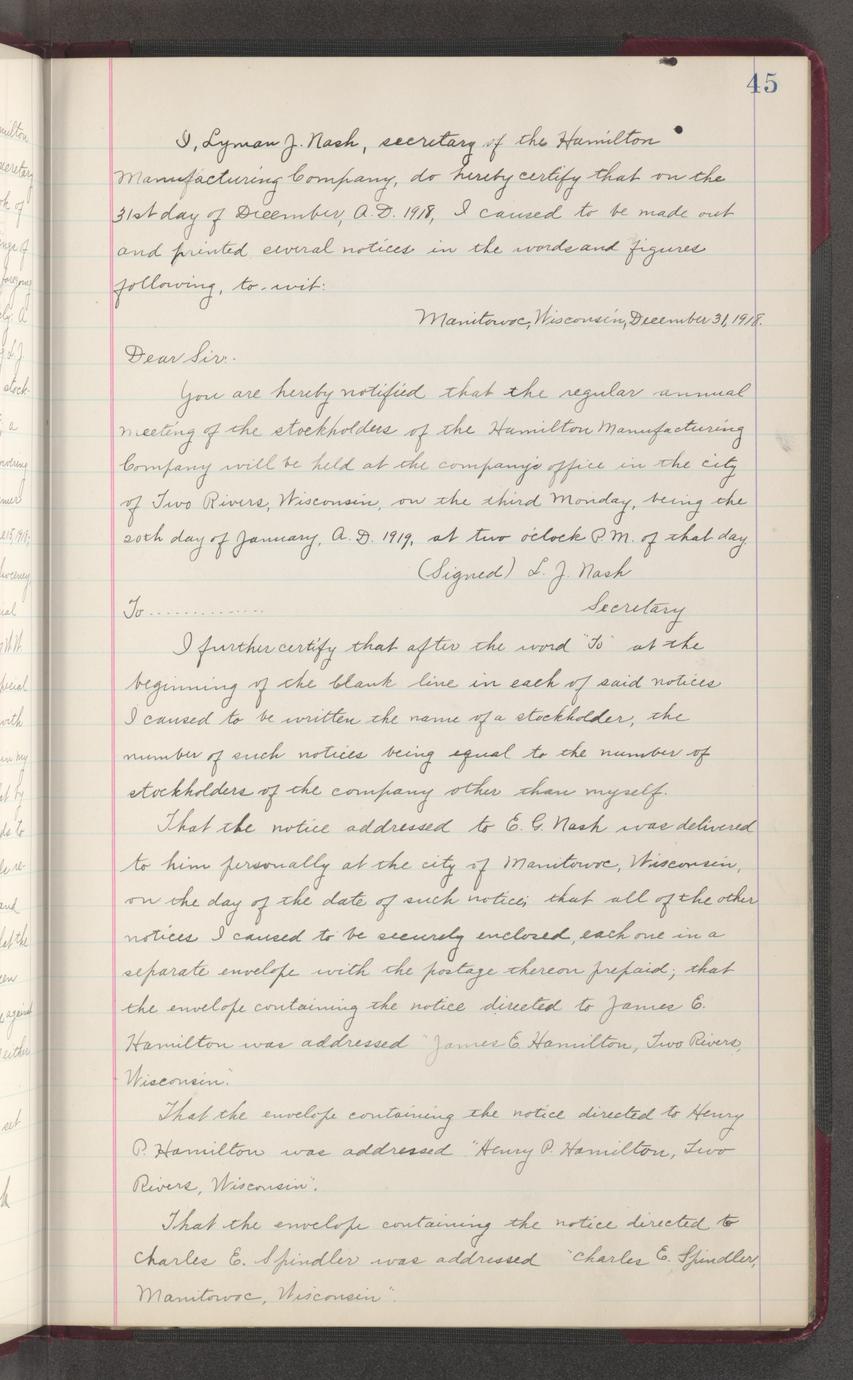 45
I, Lyman J. Nash, secretary of the Hamilton
Manufacturing Company, do hereby certify that on the
31st day of December, A.D. 1918, I caused to be made out
and printed several notices in the words and figures
following, to-wit:
Manitowoc, Wisconsin, December 31, 1918.
Dear Sir:
You are hereby notified that the regular annual
meeting of the stockholders of the Hamilton Manufacturing
Company will be held at the company's office in the city
of Two Rivers, Wisconsin, on the third Monday, being the
20th day of January, A.D. 1919, at two o'clock P.M. of that day.
(Signed) L. J. Nash
To .............. Secretary
I further certify that after the word "To" at the
beginning of the blank line in each of said notices
I caused to be written the name of a stockholder, the
number of such notices being equal to the number of
stockholders of the company other than myself.
That the notice addressed to E. G. Nash was delivered
to him personally at the city of Manitowoc, Wisconsin,
on the day of the date of such notice; that all of the other
notices I caused to be securely enclosed, each one in a
separate envelope with the postage thereon prepaid; that
the envelope containing the notice directed to James E.
Hamilton was addressed "James E. Hamilton, Two Rivers,
Wisconsin".
That the envelope containing the notice directed to Henry
P. Hamilton was addressed "Henry P. Hamilton, Two
Rivers, Wisconsin".
That the envelope containing the notice directed to
Charles E. Spindler was addressed "Charles E. Spindler,
Manitowoc, Wisconsin".